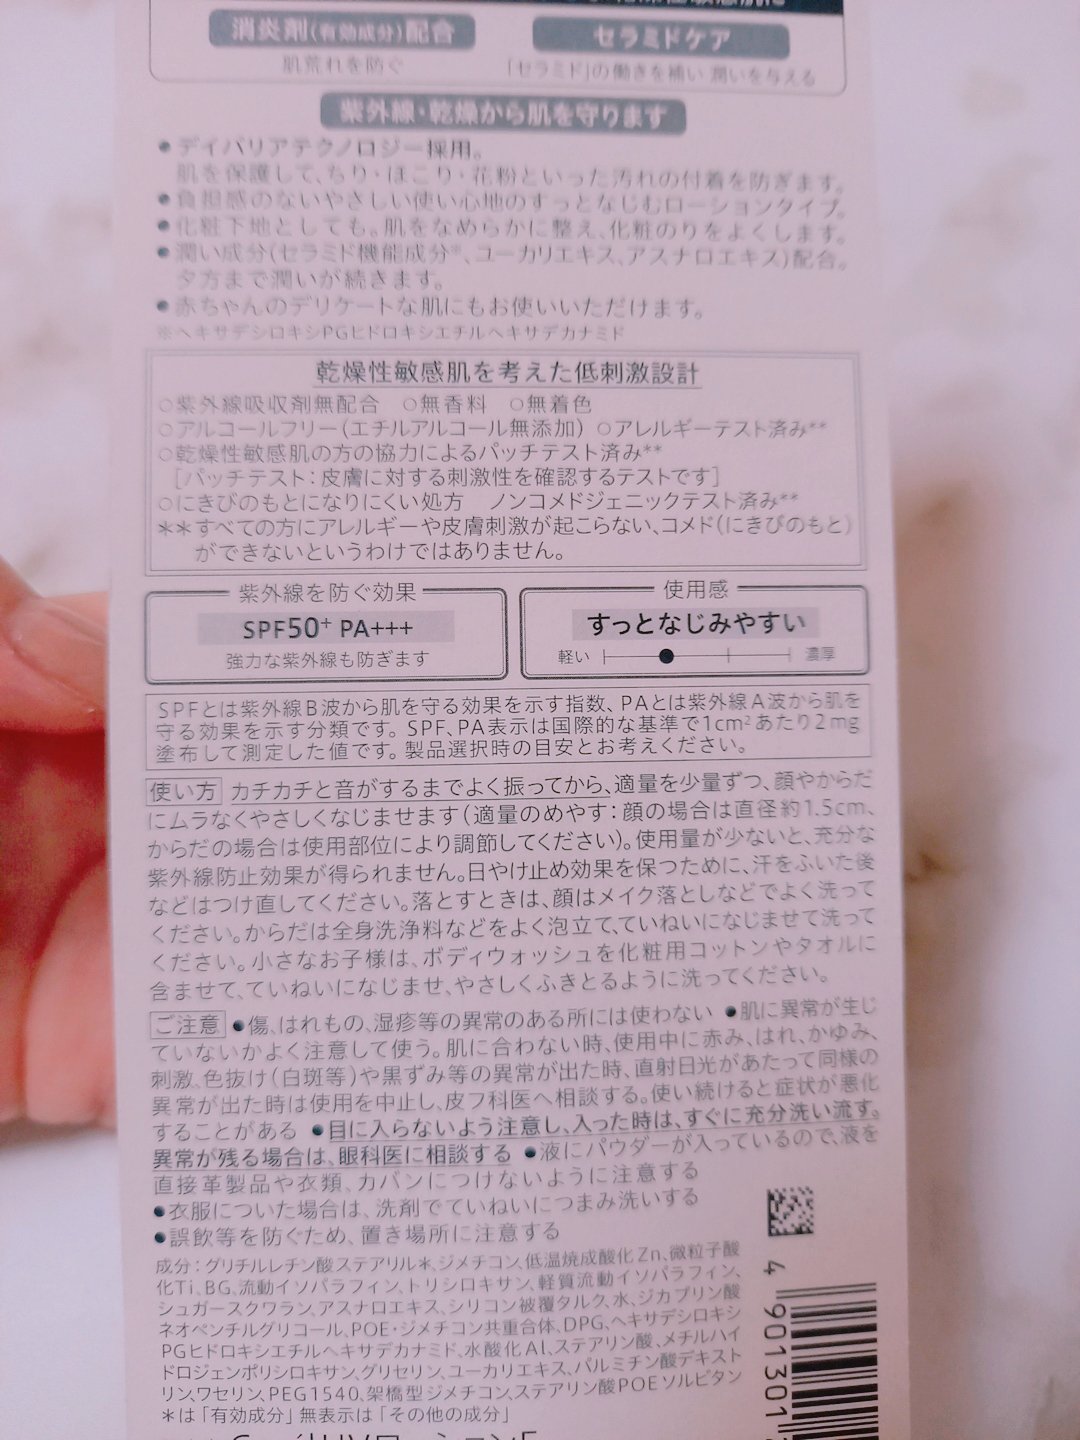 消炎剤(有効成分)配合
肌荒れを防ぐ
セラミドケア
「セラミド」の働きを補い 潤いを与える
紫外線・乾燥から肌を守ります
●デイバリアテクノロジー採用。
肌を保護して、ちり・ほこり・花粉といった汚れの付着を防ぎます。
●負担感のないやさしい使い心地のすっとなじむローションタイプ。
●化粧下地としても。肌をなめらかに整え、化粧のりをよくします。
●潤い成分(セラミド機能成分※、ユーカリエキス、アスナロエキス)配合。
夕方まで潤いが続きます。
●赤ちゃんのデリケートな肌にもお使いいただけます。
※ヘキサデシロキシPGヒドロキシエチルヘキサデカナミド
乾燥性敏感肌を考えた低刺激設計
○紫外線吸収剤無配合 ○無香料 ○無着色
○アルコールフリー(エチルアルコール無添加) ○アレルギーテスト済み**
○乾燥性敏感肌の方の協力によるパッチテスト済み**
[パッチテスト:皮膚に対する刺激性を確認するテストです]
○にきびのもとになりにくい処方 ノンコメドジェニックテスト済み**
**すべての方にアレルギーや皮膚刺激が起こらない、コメド(にきびのもと)
ができないというわけではありません。
紫外線を防ぐ効果
SPF50+ PA+++
強力な紫外線も防ぎます
使用感
すっとなじみやすい
軽い 濃厚
SPFとは紫外線B波から肌を守る効果を示す指数、PAとは紫外線A波から肌を
守る効果を示す分類です。SPF、PA表示は国際的な基準で1cm²あたり2mg
塗布して測定した値です。製品選択時の目安とお考えください。
使い方 カチカチと音がするまでよく振ってから、適量を少量ずつ、顔やからだ
にムラなくやさしくなじませます(適量のめやす:顔の場合は直径約1.5cm、
からだの場合は使用部位により調節してください)。使用量が少ないと、充分な
紫外線防止効果が得られません。日やけ止め効果を保つために、汗をふいた後
などはつけ直してください。落とすときは、顔はメイク落としなどでよく洗って
ください。からだは全身洗浄料などをよく泡立て、ていねいになじませて洗って
ください。小さなお子様は、ボディウォッシュを化粧用コットンやタオルに
含ませて、ていねいになじませ、やさしくふきとるように洗ってください。
ご注意 ●傷、はれもの、湿疹等の異常のある所には使わない ●肌に異常が生じ
ていないかよく注意して使う。肌に合わない時、使用中に赤み、はれ、かゆみ、
刺激、色抜け(白斑等)や黒ずみ等の異常が出た時、直射日光があたって同様の
異常が出た時は使用を中止し、皮フ科医へ相談する。使い続けると症状が悪化
することがある ●目に入らないよう注意し、入った時は、すぐに充分洗い流す。
異常が残る場合は、眼科医に相談する ●液にパウダーが入っているので、液を
直接革製品や衣類、カバンにつけないように注意する
●衣服についた場合は、洗剤でていねいにつまみ洗いする
●誤飲等を防ぐため、置き場所に注意する
成分:グリチルレチン酸ステアリル*、ジメチコン、低温焼成酸化Zn、微粒子酸
化Ti、BG、流動イソパラフィン、トリシロキサン、軽質流動イソパラフィン、
シュガースクワラン、アスナロエキス、シリコン被覆タルク、水、ジカプリン酸
ネオペンチルグリコール、POE・ジメチコン共重合体、DPG、ヘキサデシロキシ
PGヒドロキシエチルヘキサデカナミド、水酸化Al、ステアリン酸、メチルハイ
ドロジェンポリシロキサン、グリセリン、ユーカリエキス、パルミチン酸デキスト
リン、ワセリン、PEG1540、架橋型ジメチコン、ステアリン酸POEソルビタン
*は「有効成分」無表示は「その他の成分」
4 901301